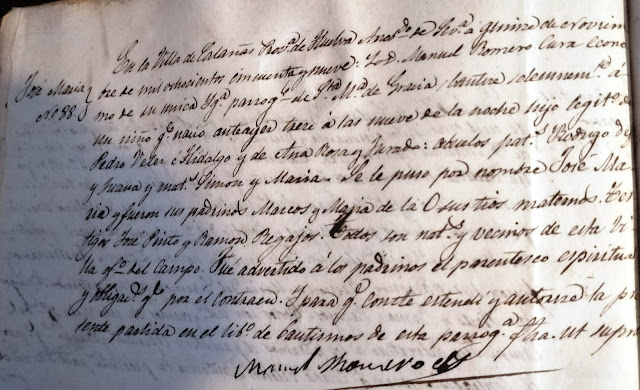 En la Villa de Calañas Prov.ª de Huelva Arzb.do de Sev.ª á quince de Noviem
José Maria
Nº 88
bre de mil ochocientos cincuenta y nueve: Yo D. Manuel Romero Cura Econo
mo de su unica Ygª parroq.l de S.ta M.ª de Gracia, bautize solemnem.te á
un niño q.e nacio anteayer trece á las nueve de la noche hijo legit.º de
Pedro Velez é Hidalgo y de Ana Rosa y Jurado: abuelos pat.s Rodrigo
y Juana y mat.s Simon y Maria. Se le puso por nombre José Ma
ria y fueron sus padrinos Marcos y Maria de la O sus tios maternos. Tes
tigos José Pinto y Ramon Regajos. Todos son nat.s y vecinos de esta Vi
lla of.º del Campo. Fué advertido á los padrinos el parentesco espiritua
y obligac.n q.e por él contraen. Y para q.e conste estendi y autorizé la p
sente partida en el lib.º de bautismos de esta parroq.ª fha. ut supra
Manuel Romero